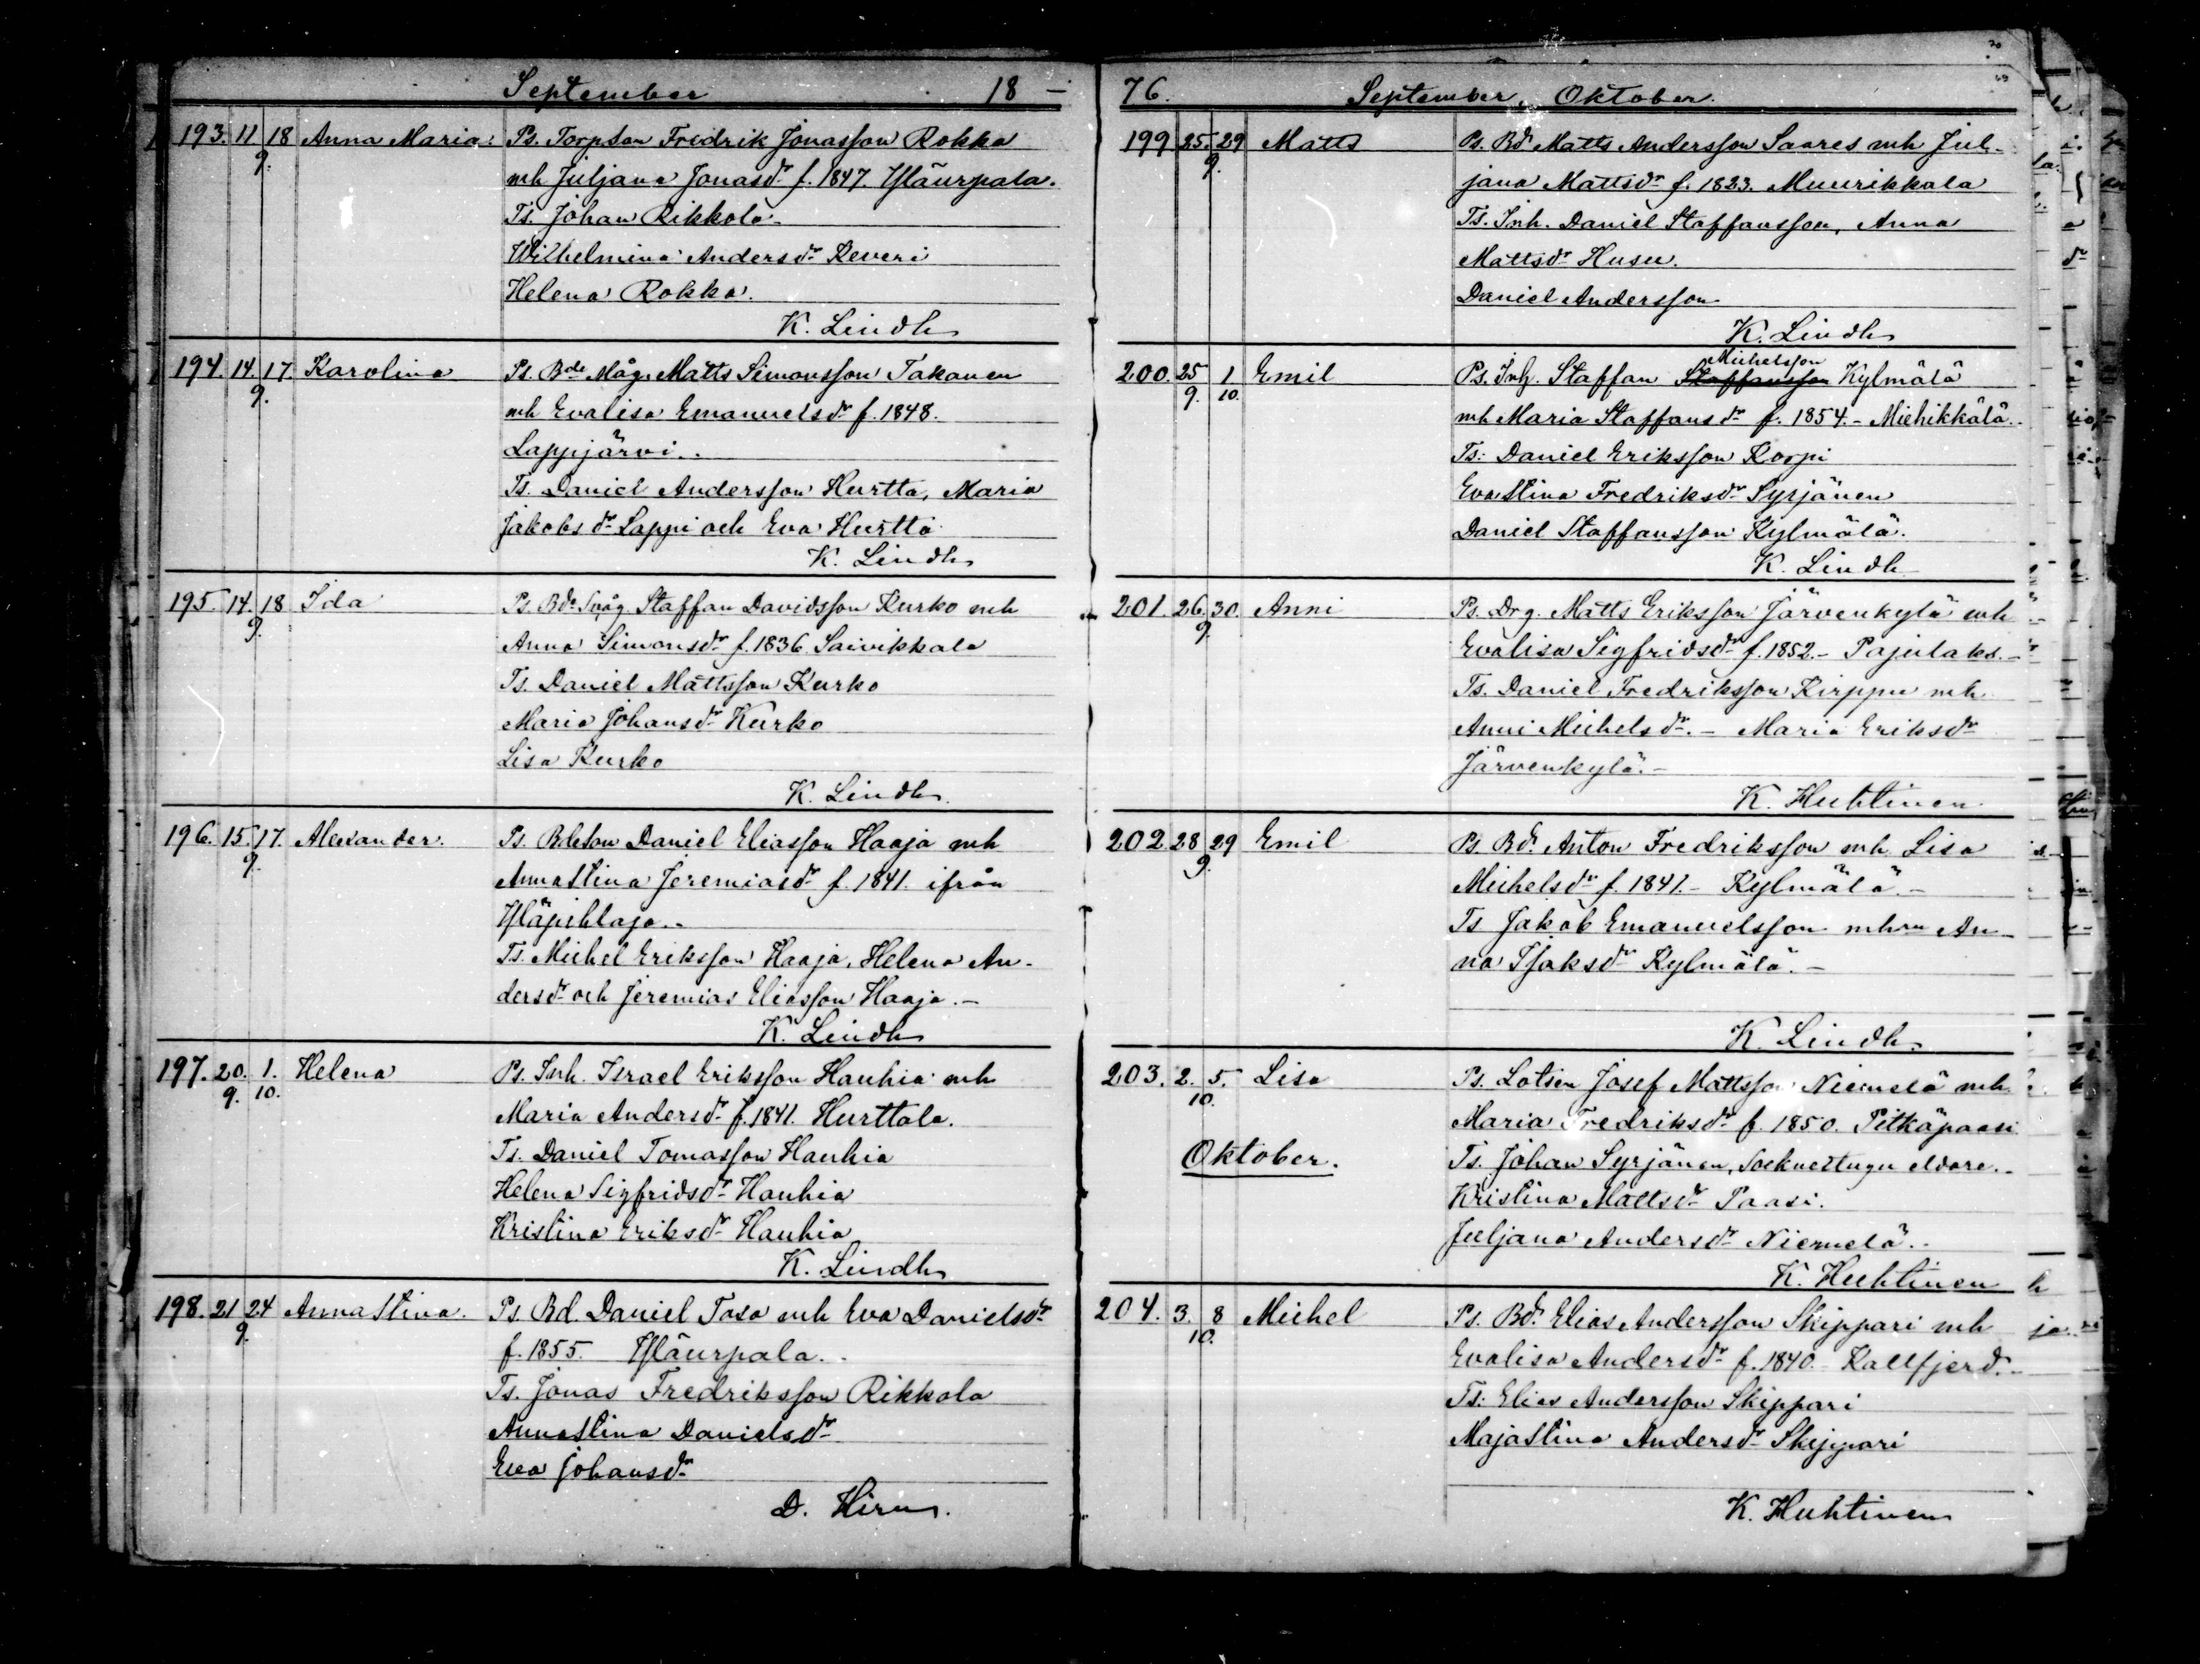 September 18
193. 11 18 Anna Maria. Ps. Torpson Fredrik Jonasson Rokka
9. mh Juljana Jonasdr f. 1847. Yläurpala.
Ts. Johan Rikkola
Wilhelmina Andersdr Reveri
Helena Rokka.
K. Lindh
194. 14. 17. Karolina Ps. Bde Måg. Matts Simonsson Takanen
9. mh Evalisa Emanuelsdr f. 1848.
Lappjärvi.
Ts. Daniel Andersson Hurtta, Maria
Jakobsdr Lappi och Eva Hurtta
K. Lindh
195. 14. 18 Ida Ps. Bde Svåg. Staffan Davidsson Kurko mh
9. Anna Simonsdr f. 1836. Saivikkala
Ts. Daniel Mattsson Kurko
Maria Johansdr Kurko
Lisa Kurko
K. Lindh.
196. 15. 17. Alexander. Ps. Bdeson Daniel Eliasson Haaja mh
9. Annastina Jeremiasdr f. 1841. ifrån
Yläpihlaja.
Ts. Michel Eriksson Haaja, Helena An-
dersdr och Jeremias Eliasson Haaja.
K. Lindh
197. 20. 1. Helena Ps. Inh. Israel Eriksson Hauhia mh
9. 10. Maria Andersdr f. 1841. Hurttala.
Ts. Daniel Tomasson Hauhia
Helena Sigfridsdr Hauhia
Kristina Eriksdr Hauhia
K. Lindh
198. 21 24 Annastina. Ps. Bd. Daniel Taso mh Eva Danielsdr
9. f. 1855. Yläurpala.
Ts. Jonas Fredriksson Rikkola
Annastina Danielsdr
Eva Johansdr
D. Hirn.
76. September, Oktober.
199 25. 29 Matts Ps. Bd. Matts Andersson Saares mh Jul-
9. jana Mattsdr f. 1823. Muurikkala
Ts. Inh. Daniel Staffansson, Anna
Mattsdr Husu.
Daniel Andersson
K. Lindh
Michelsson
200. 25 1 Emil Ps. Inh. Staffan Staffansson Kylmälä
9. 10. mh Maria Staffansdr f. 1854. - Miehikkälä.
Ts: Daniel Eriksson Korpi
Evastina Fredriksdr Syrjänen
Daniel Staffansson Kylmälä.
K. Lindh
201. 26. 30. Anni Ps. Drg. Matts Eriksson Järvenkylä mh
9. Evalisa Sigfridsdr f. 1852. - Pajulaks. -
Ts. Daniel Fredriksson Kirppu mh
Anni Michelsdr. - Maria Eriksdr
Järvenkylä. -
K. Huhtinen
202. 28 29 Emil Ps. Bd. Anton Fredriksson mh Lisa
9. Michelsdr f. 1841. - Kylmälä. -
Ts Jakob Emanuelsson mhm An-
na Isaksdr Kylmälä. -
K. Lindh.
203. 2. 5. Lisa Ps. Lotsen Josef Mattsson Niemelä mh
10. Maria Fredriksdr f. 1850. Pitkäpaasi
Oktober. Ts. Johan Syrjänen, Socknestugu eldare.
Kristina Mattsdr Paasi.
Juljana Andersdr Niemelä.
K. Huhtinen
204. 3. 8 Michel Ps. Bd. Elias Andersson Skippari mh
10. Evalisa Andersdr f. 1840. - Kallfjerd.
Ts: Elias Andersson Skippari
Majastina Andersdr Skippari
K. Huhtinen